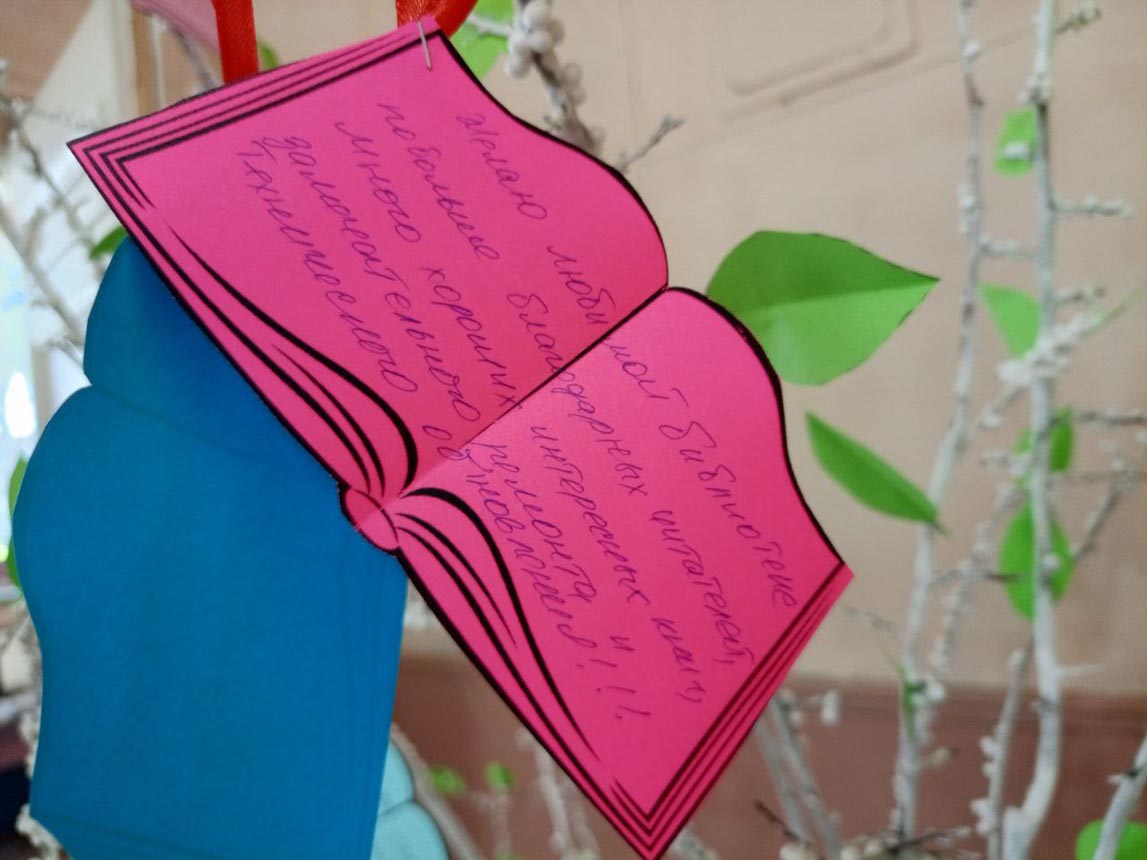 Желаю любимой библиотеке
побольше благодарных читателей,
много хороших интересных книг,
замечательного ремонта и
технического обновления!!!